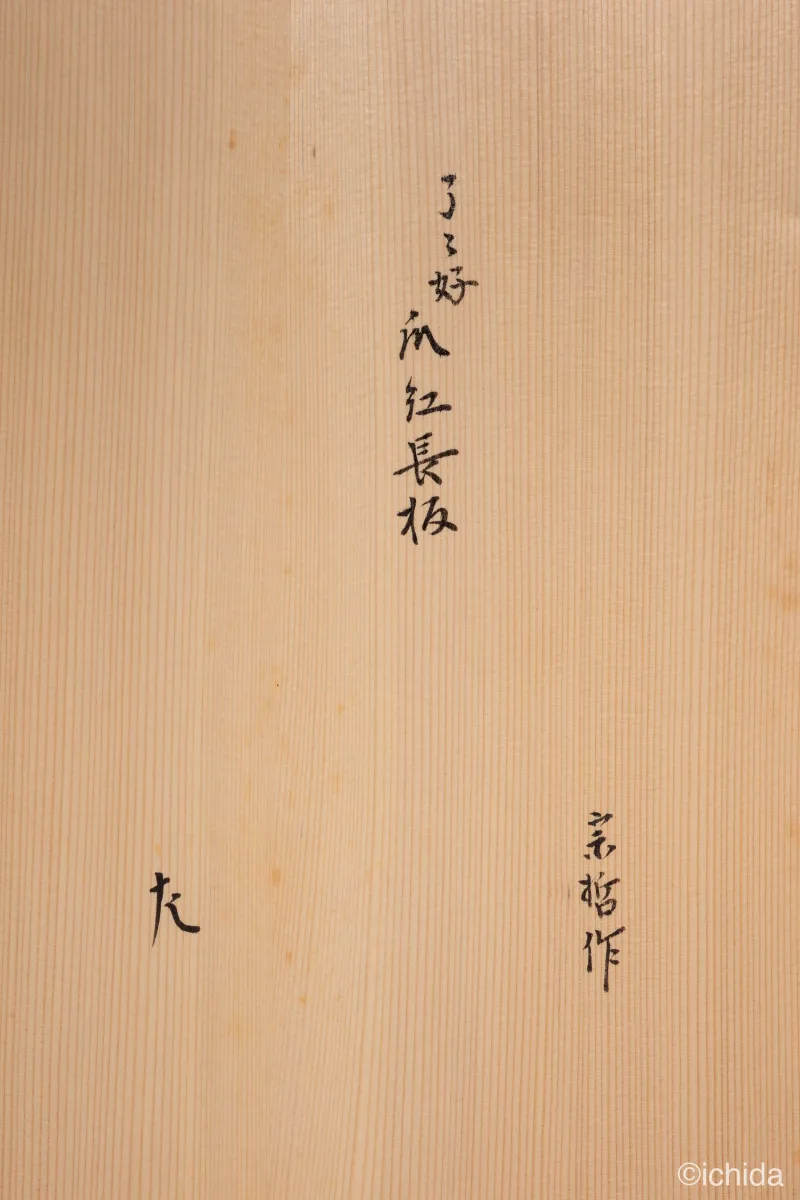 宗哲作
了々好
爪紅長板
©ichida